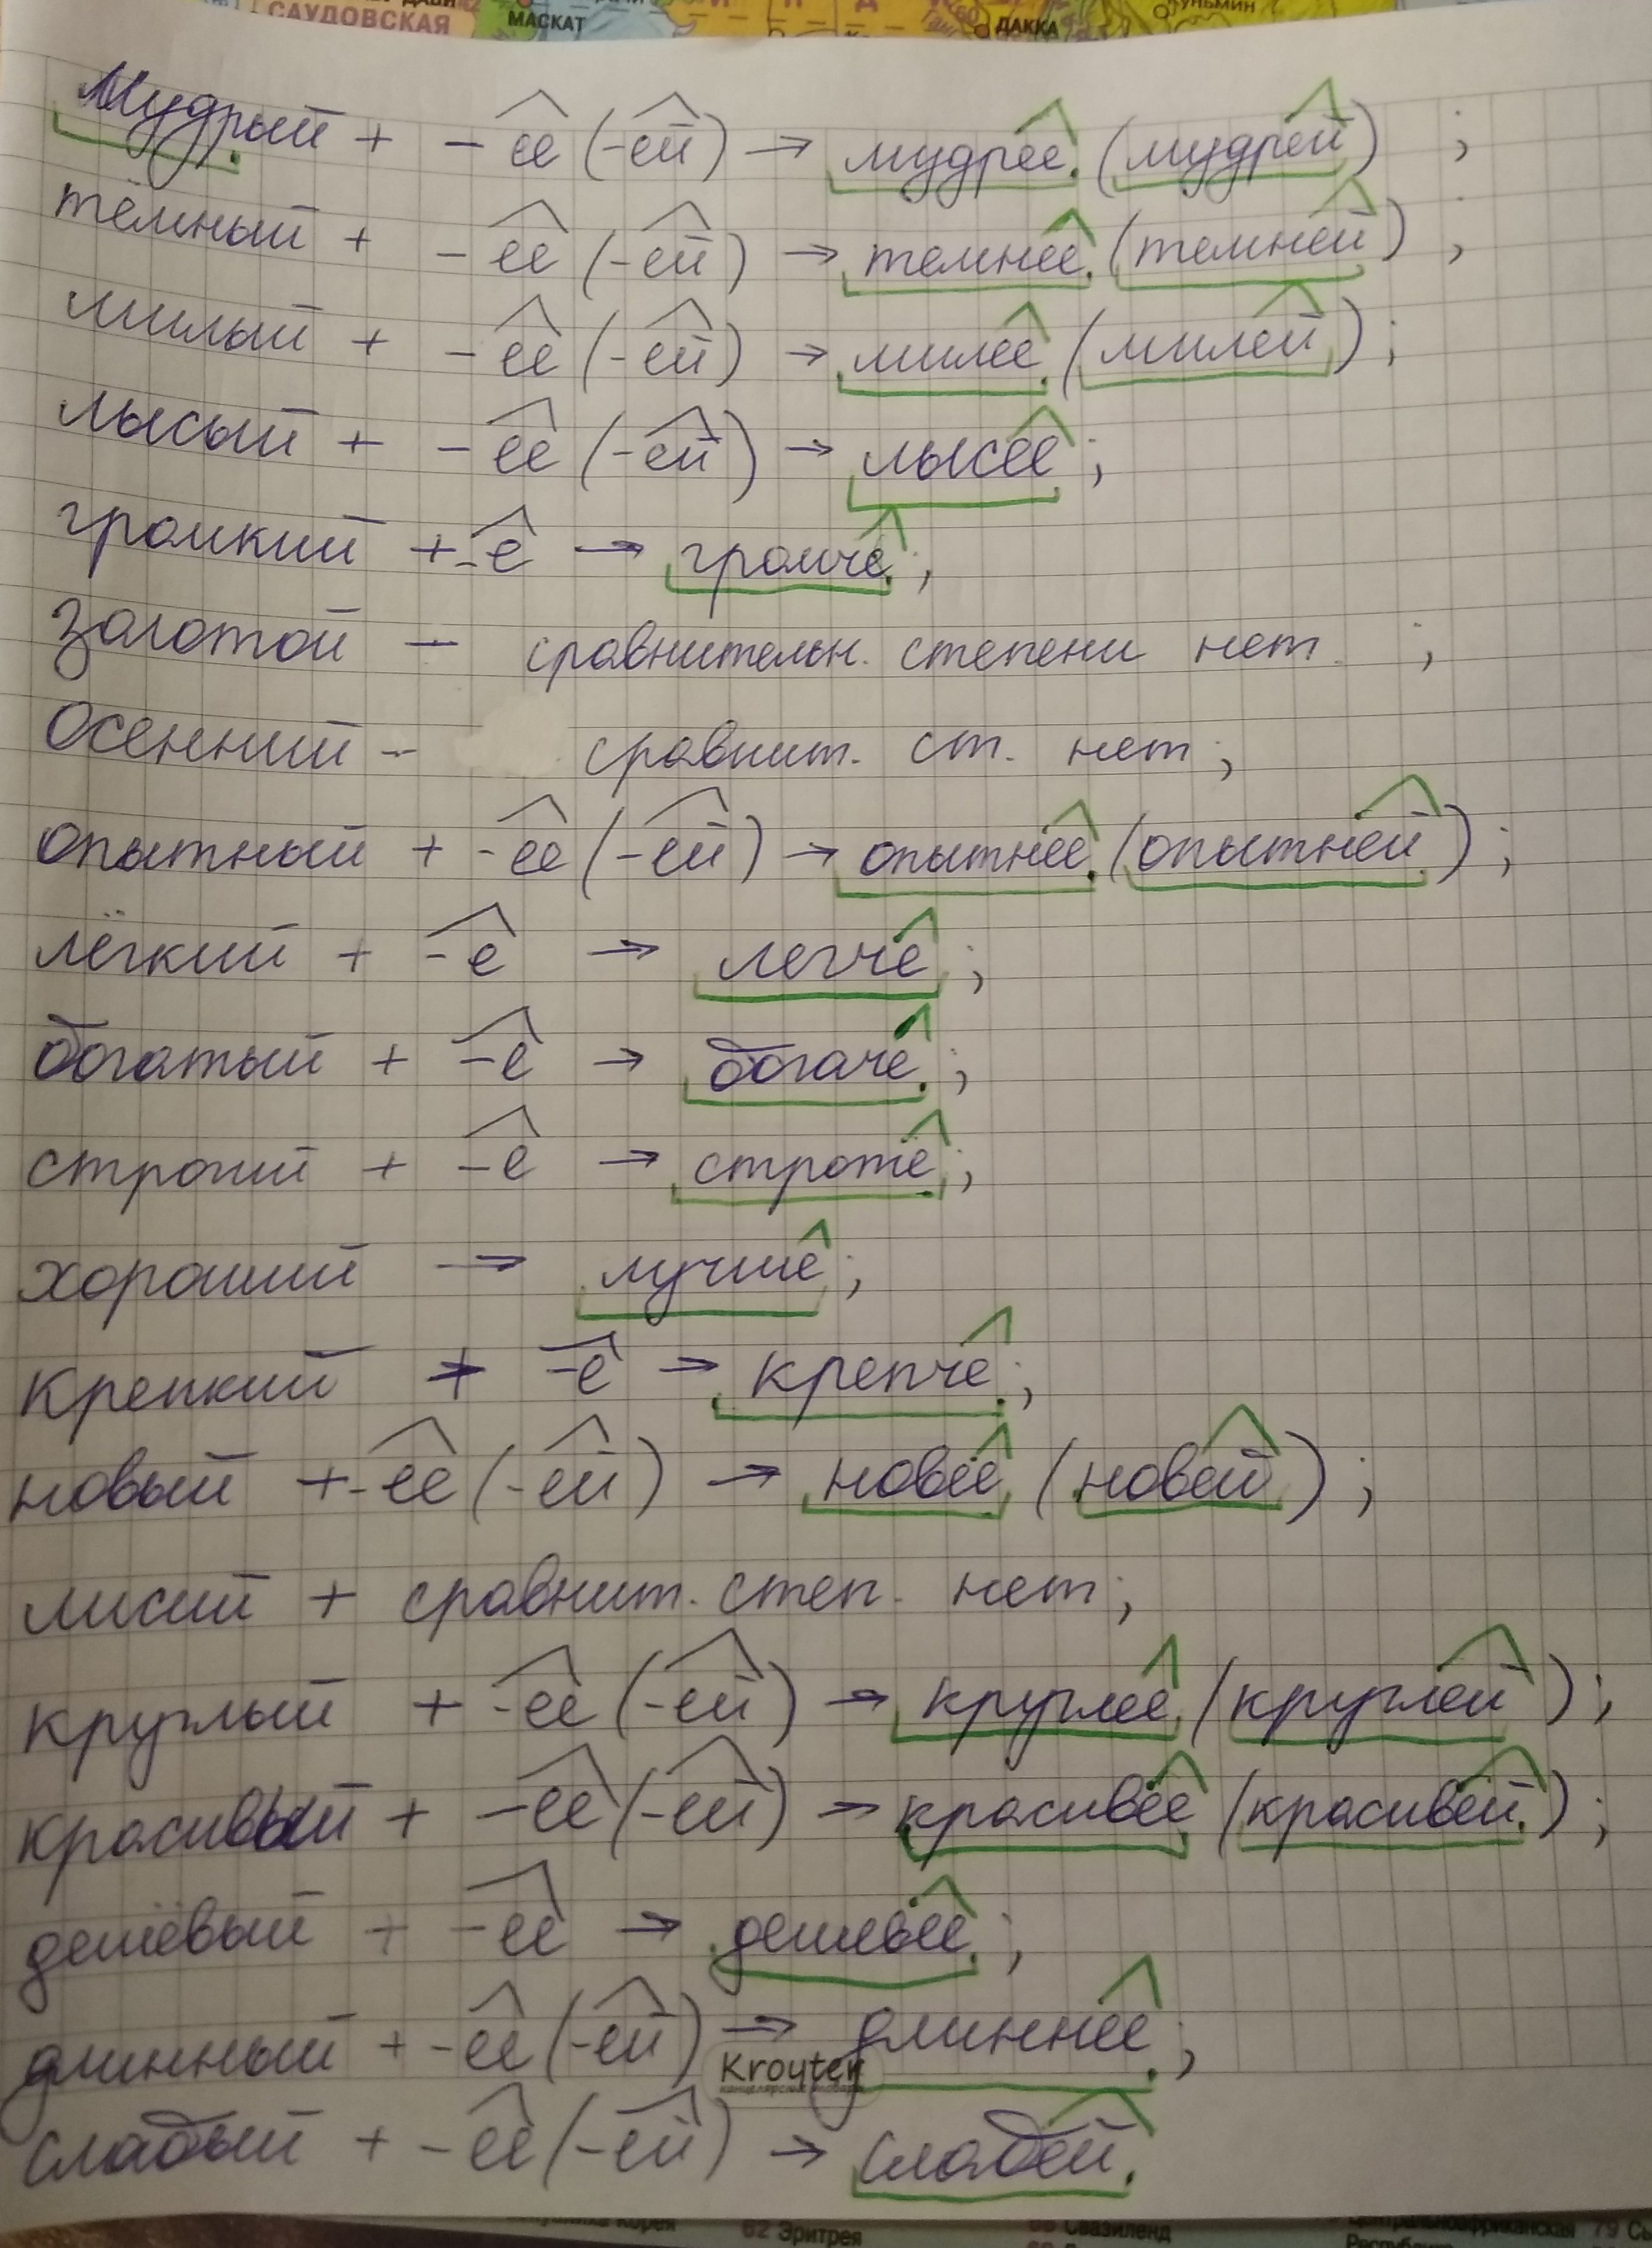 САУДОВСКАЯ МАСКАТ ДАККА
Мудрый + -ее (-ей) → мудрее (мудрей) ;
тёмный + -ее (-ей) → темнее (темней) ;
милый + -ее (-ей) → милее (милей) ;
лысый + -ее (-ей) → лысее ;
громкий + -е → громче ;
золотой - сравнительн. степени нет ;
осенний - сравнит. ст. нет ;
опытный + -ее (-ей) → опытнее (опытней) ;
лёгкий + -е → легче ;
богатый + -е → богаче ;
строгий + -е → строже ;
хороший → лучше ;
крепкий + -е → крепче ;
новый + -ее (-ей) → новее (новей) ;
лисий + сравнит. степ. нет ;
круглый + -ее (-ей) → круглее (круглей) ;
красивый + -ее (-ей) → красивее (красивей) ;
дешёвый + -ее → дешевее ;
длинный + -ее (-ей) → длиннее ;
Kroyter
канцелярские товары
слабый + -ее (-ей) → слабей
62 Эритрея Свазиленд Центральноафриканская 79